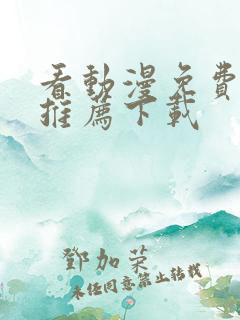 看動漫免費
推薦下載
鄧加榮
未经同意禁止转载